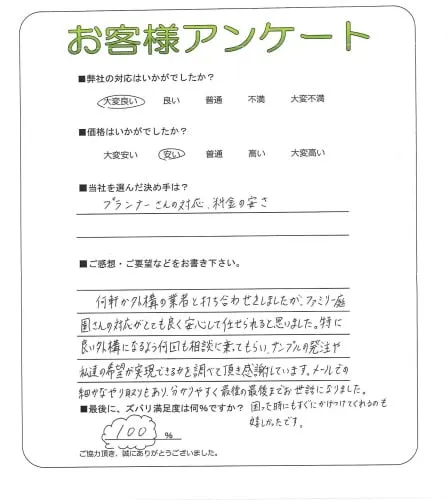 お客様アンケート
■弊社の対応はいかがでしたか？
大変良い 良い 普通 不満 大変不満
■価格はいかがでしたか？
大変安い 安い 普通 高い 大変高い
■当社を選んだ決め手は？
プランナーさんの対応、料金の安さ
■ご感想・ご要望などをお書き下さい。
何軒か外構の業者と打ち合わせをしましたが、ファミリー庭
園さんの対応がとても良く安心して任せられると思いました。特に
良い外構になるよう何回も相談に乗ってもらい、サンプルの発注や
私達の希望が実現できるかを調べて頂き感謝しています。メールでの
細かなやり取りもあり、分かりやすく最後の最後までお世話になりました。
困った時にもすぐにかけつけてくれるのも
嬉しかったです。
■最後に、ズバリ満足度は何％ですか？
100 %
ご協力頂き、誠にありがとうございました。